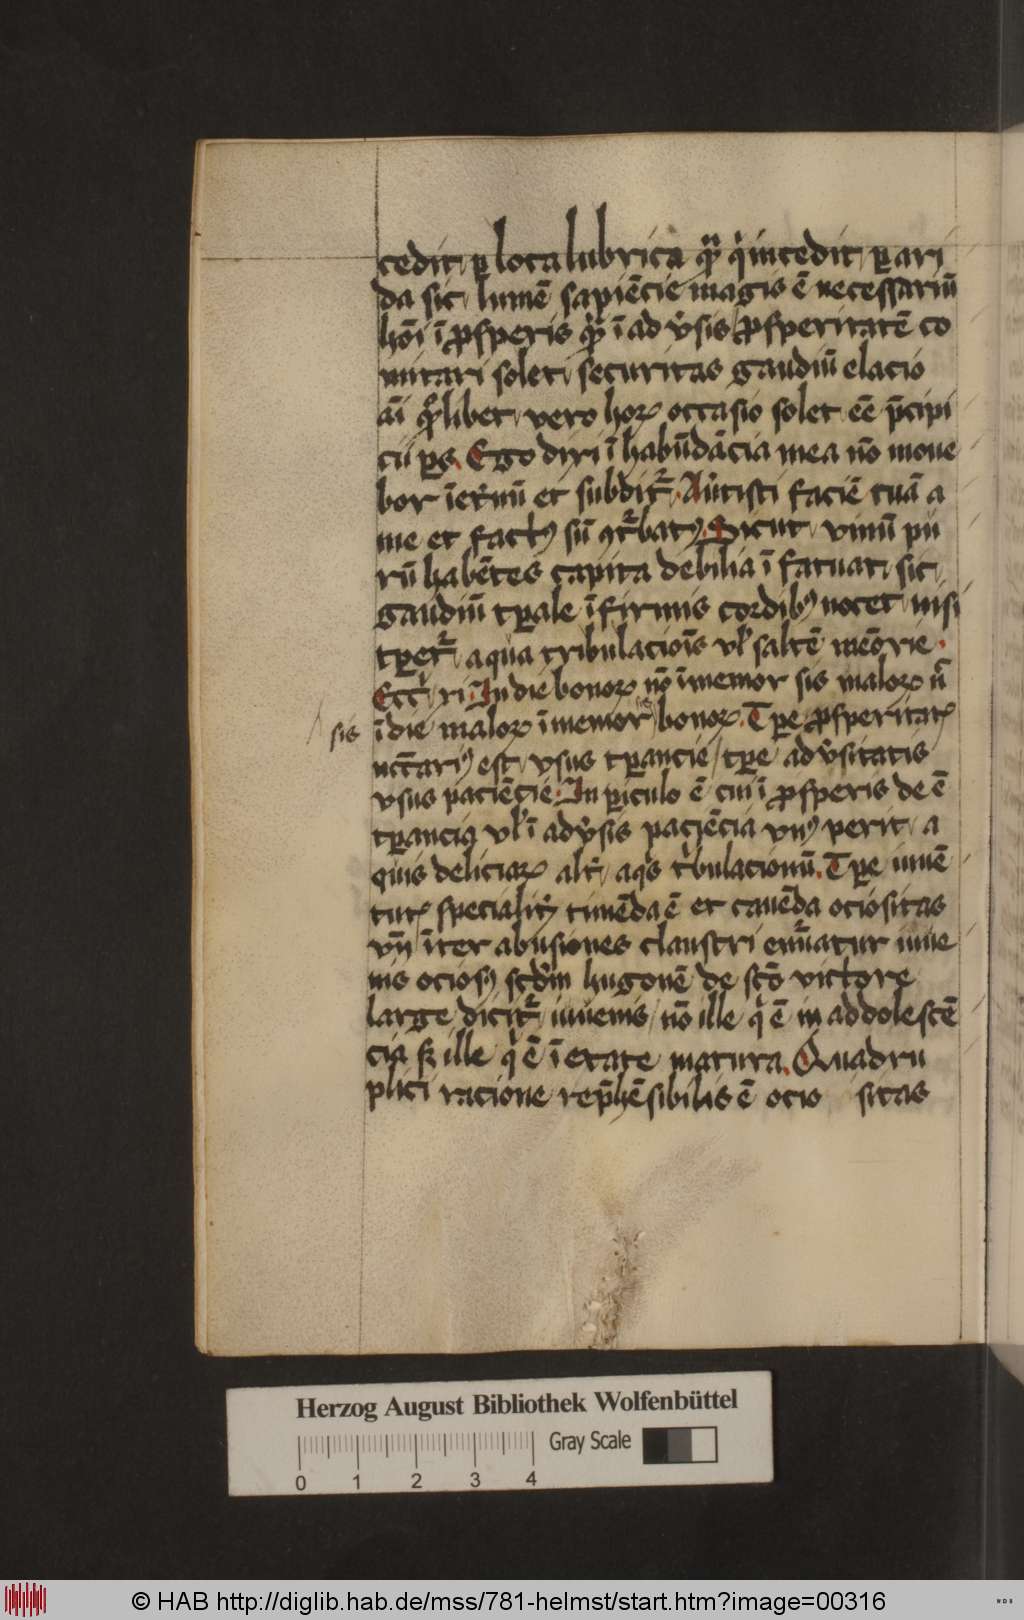 cedit p loca lubrica qͣ qͥ incedit p ari
da sic lumē sapiēcie magis ē necessariū
hōi ī ꝓsperis qͣ ī adv̓sis ꝓsperitatē co
mitari solet securitas gaudiū elacio
aī qͦlibet vero hoꝝ occasio solet eē p̄cipi
cii ps Ego dixi ī habūdācia mea nō moue
bor īet̓nū et subditͬ Au̓tisti faciē tuā a
me et factꝰ sū ꝯtͬbatꝰ Sicut vinū pu
rū habētes capita debilia īfatuat sic
gaudiū tꝑale īfirmis cordibꝰ nocet nisi
tꝑetͬ aqua tribulaciōis vl̓ saltē memōrie
Eccͥ xi In die bonoꝝ nō īmemor sis maloꝝ n̄
sis ī die maloꝝ īmemor bonoꝝ Tꝑe ꝓsperitatꝭ
nc̄cariꝰ est vsus tꝑancie tꝑe adv̓sitatis
vsus paciēcie In piculo ē cui ī ꝓsperis deē
tꝑancia vl̓ ī adv̓sis paciēcia vnꝰ perit a
quis deliciaꝝ alt̓ aqͥs tͥbulacionū Tꝑe iuuē
tutꝭ specialit̓ timēda ē et cauēda ociositas
vn̄ īter abusiones claustri enūatur iuue
nis ociosꝰ scdm̄ hugonē de scō victore
large dicitͬ iuuenis nō ille qͥ ē in addolescē
cia sꝫ ille qͥ ē ī etate matura Quadru
plici racione rep̄hēsibilis ē ocio sitas
Herzog August Bibliothek Wolfenbüttel
Gray Scale
0 1 2 3 4
© HAB http://diglib.hab.de/mss/781-helmst/start.htm?image=00316